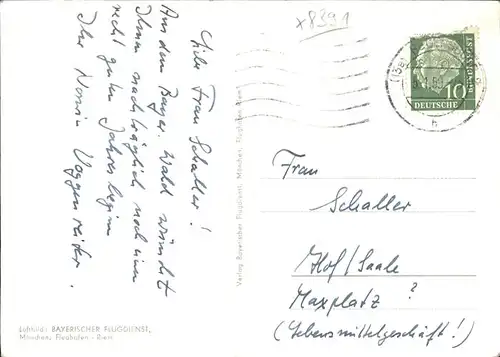 x8391
Liebe Frau Schaller!
Aus dem Bayer. Wald wünscht
Ihnen nachträglich noch einen
recht guten Jahresbeginn
Ihre
Luftbild: BAYERISCHER FLUGDIENST,
München, Flughafen - Riem
Verlag Bayerischer Flugdienst, München, Flughafen-Riem
DEUTSCHE
BUNDESPOST
10
h
Frau
Schaller
Hof/Saale
Maxplatz ?
(Lebensmittelgeschäft!)